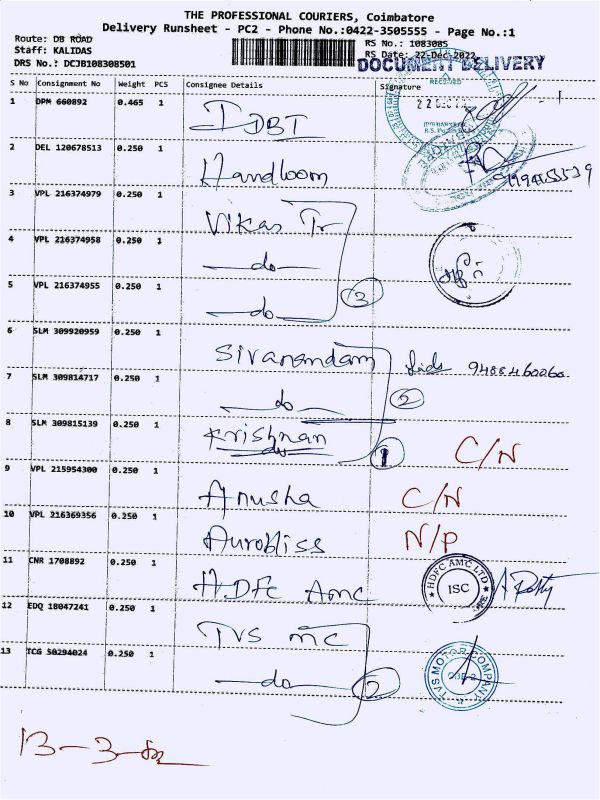 THE PROFESSIONAL COURIERS, Coimbatore
Delivery Runsheet - PC2 - Phone No.:0422-3505555 - Page No.:1
Route: DB ROAD
Staff: KALIDAS
DRS No.: DCJB108308501
RS No.: 1083085
RS Date: 22-Dec-2022
DOCUMENT DELIVERY
S No Consignment No Weight PCS Consignee Details Signature
1 DPM 660892 0.465 1 IDBI
RECEIVED
22 DEC
2 DEL 120678513 0.250 1 Handloom
3 VPL 216374979 0.250 1 Vikas Tr
4 VPL 216374958 0.250 1 -do-
5 VPL 216374955 0.250 1 -do- 3
6 SLM 309920959 0.250 1 Sivanandam
7 SLM 309814717 0.250 1 -do- 2
8 SLM 309815139 0.250 1 Krishnan 1 C/N
9 VPL 215954300 0.250 1 Anusha C/N
10 VPL 216369356 0.250 1 Aurobliss N/P
11 CNR 1708892 0.250 1 HDFC AMC HDFC AMC LTD ISC
12 EDQ 18047241 0.250 1 TVS MC
13 TCG 50294024 0.250 1 -do- 2 TVS MOTOR COMPANY